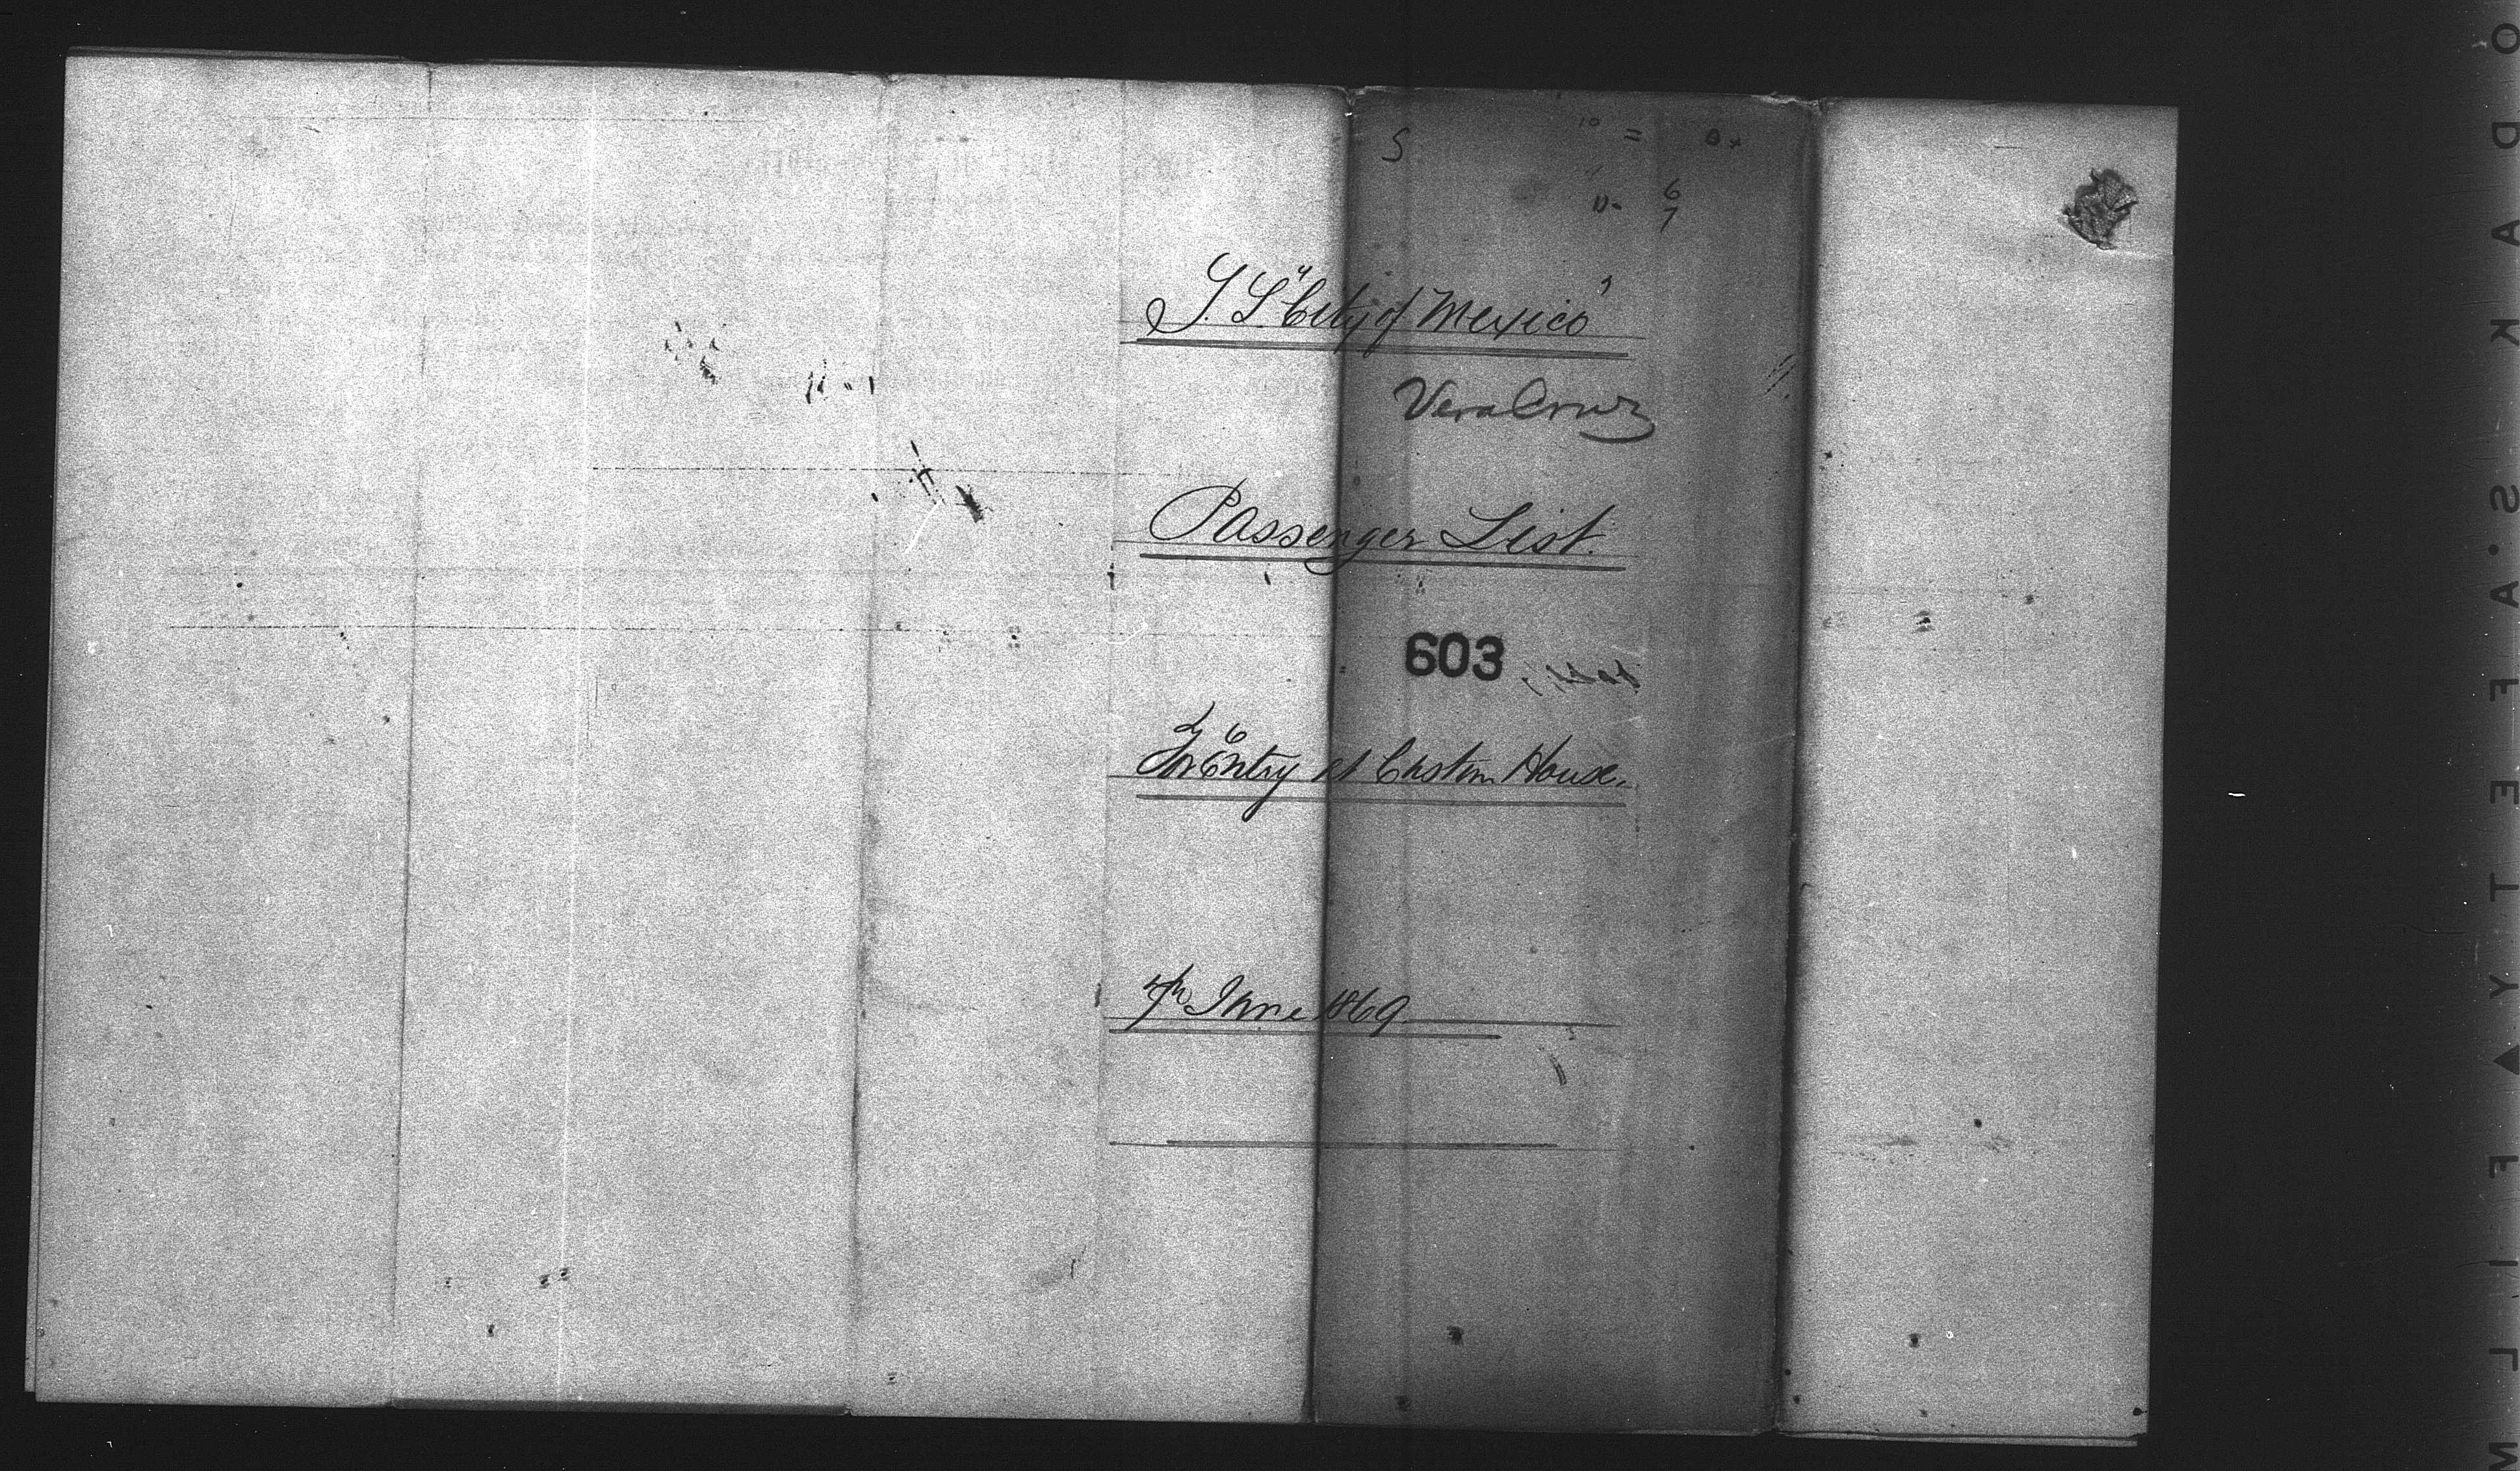 S
6
7
S. S. "City of Mexico"
Vera Cruz
Passenger List.
603
For Entry at Custom House.
7th June 1869.
KODAK · SAFETY FILM